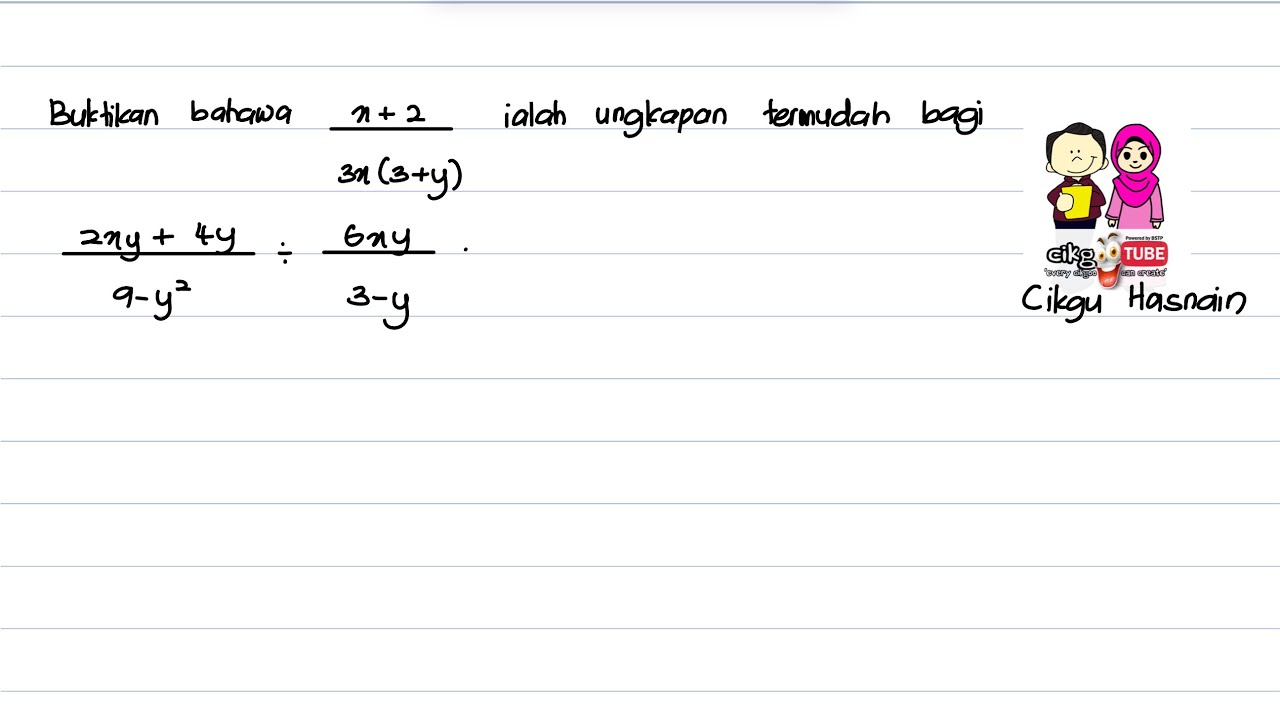 Buktikan bahawa x + 2 / 3x(3+y) ialah ungkapan termudah bagi
2xy + 4y / 9-y² ÷ 6xy / 3-y .
Powered by BSTP
cikg TUBE
can create'
Cikgu Hasnain